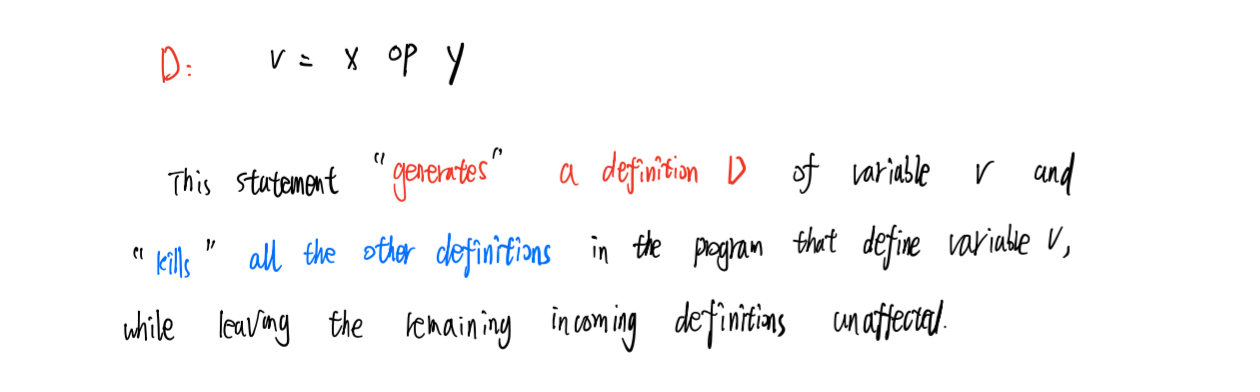 D: v = x op y
This statement "generates" a definition D of variable v and
"kills" all the other definitions in the program that define variable v,
while leaving the remaining incoming definitions unaffected.